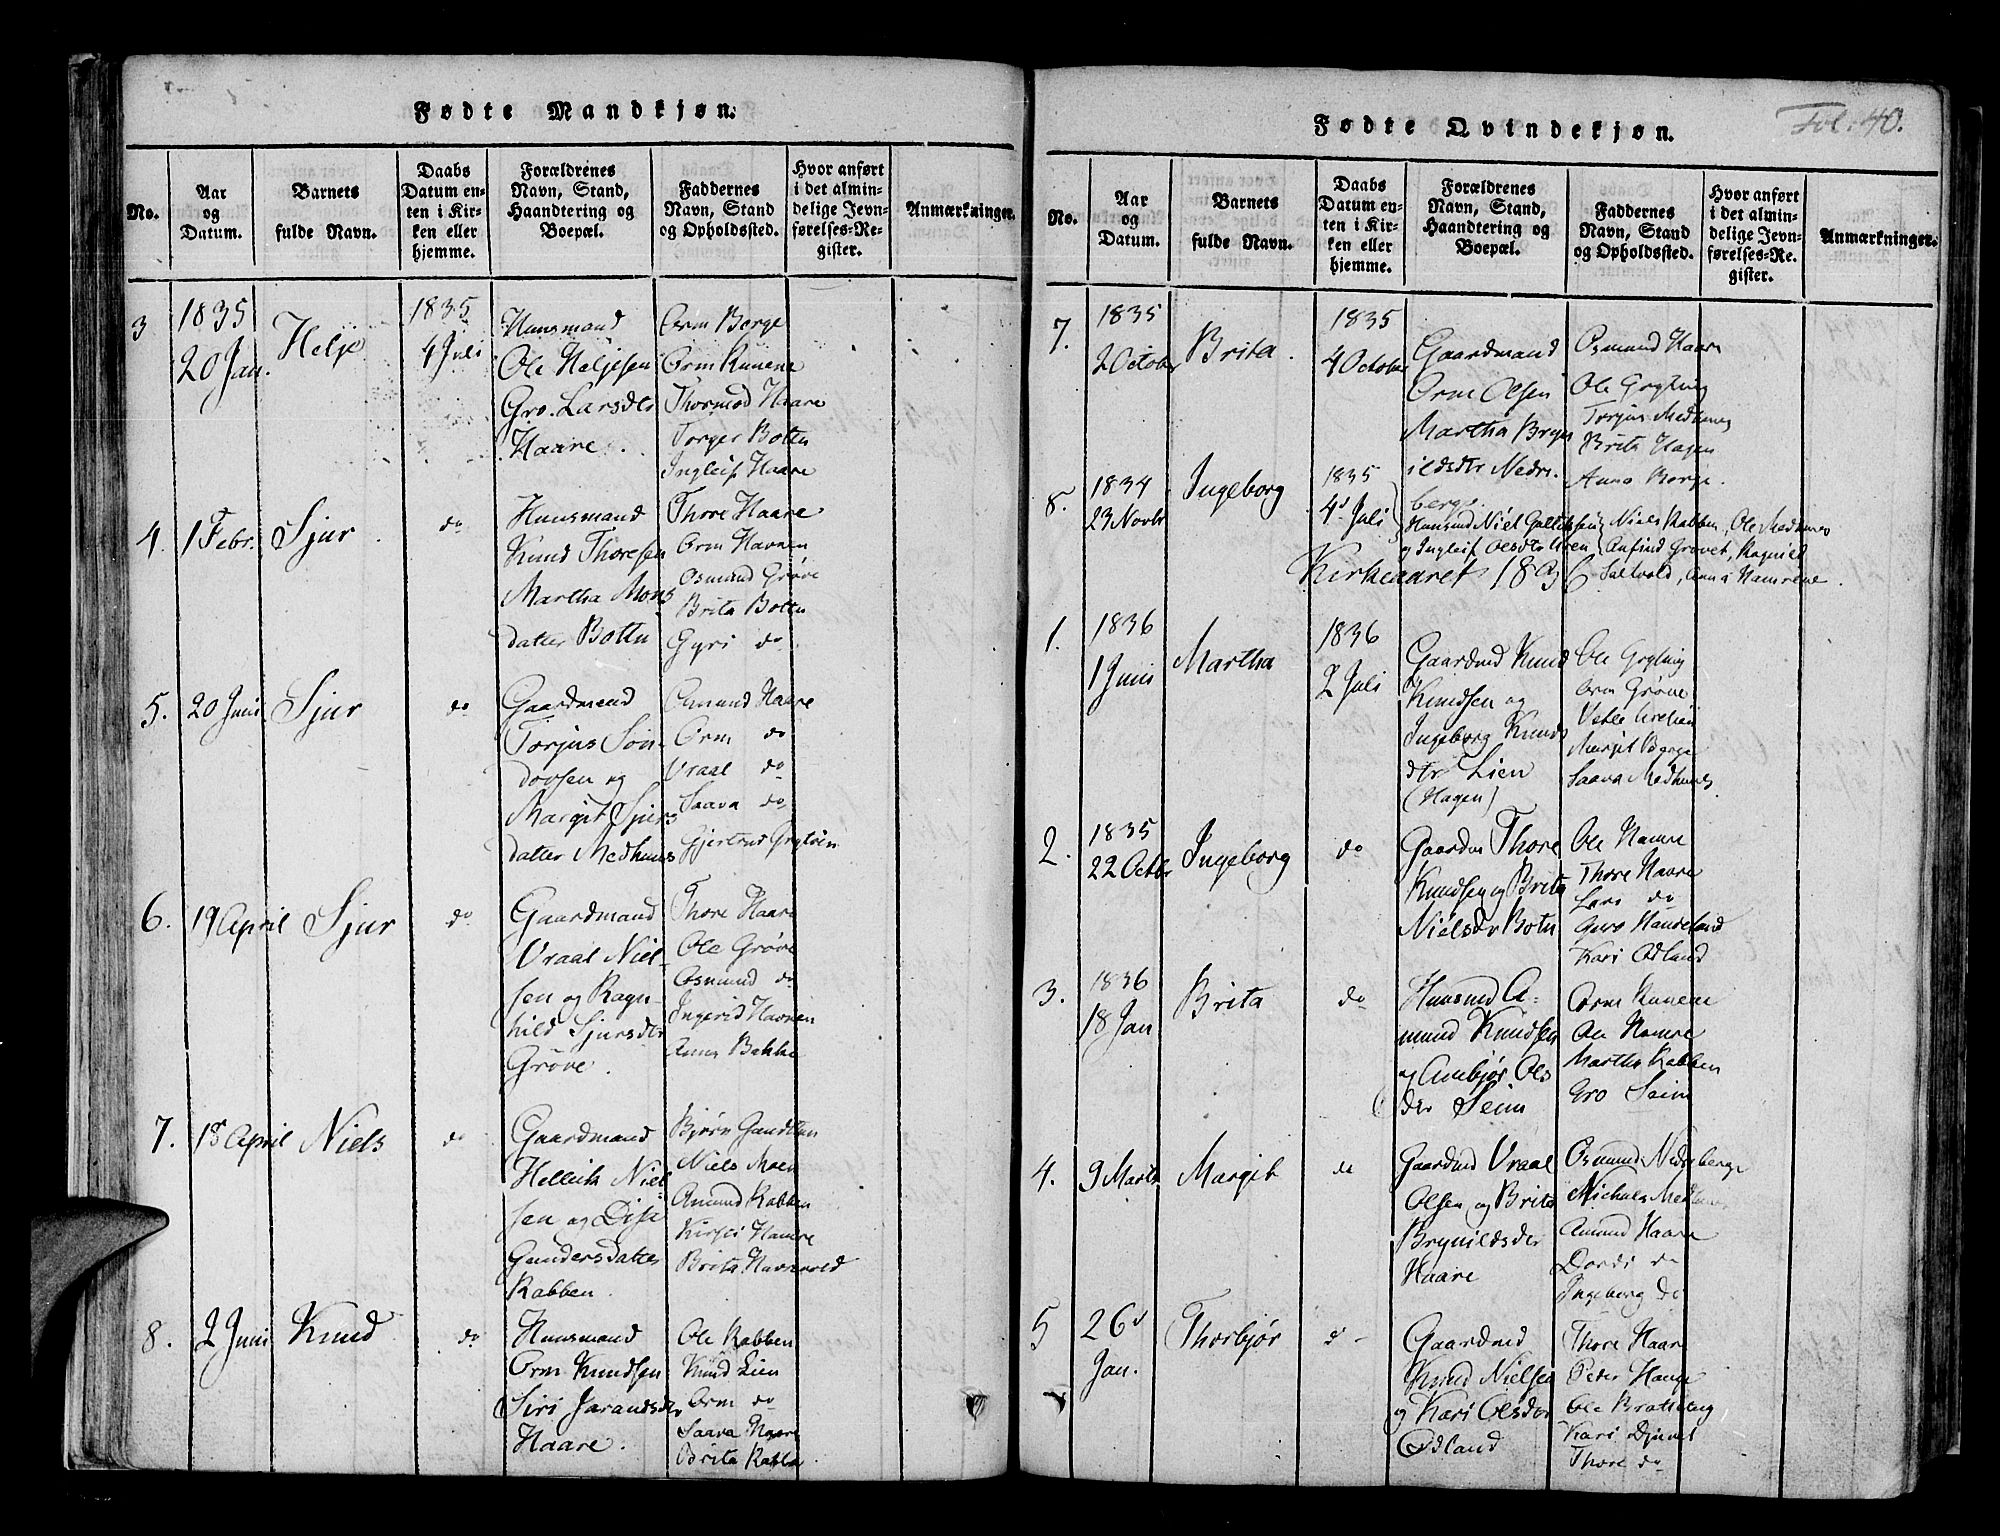 Fødte Mandkjøn.
No.
Aar
og
Datum.
Barnets
fulde Navn.
Daabs
Datum en-
ten i Kir-
ken eller
hjemme.
Forældrenes
Navn, Stand,
Haandtering og
Boepæl.
Faddernes
Navn, Stand
og Opholdssted.
Hvor anført
i det almin-
delige Jevn-
førelses-Re-
gister.
Anmærkninger.
3
1835
20 Jan.
Helje
1835
4 Juli
Huusmand
Ole Heljesen
Gro Larsdtr
Haare.
Orm Berge
Orm Runene
Thormod Haare
Torger Bottn
Ingleif Haare
4.
1 Febr.
Sjur
do
Huusmand
Knud Thoresen
Martha Mons
datter Bottn
Thore Haare
Orm Havnen
Osmund Grøve
Brita Bottn
Gyri do
5.
20 Juni
Sjur
do
Gaardmand
Torjus Son-
dovsen og
Margit Sjurs
datter Medhuus
Osmund Haare
Orm do
Vraal do
Saava do
Gjertrud Grytøien
6.
19 April
Sjur
do
Gaardmand
Vraal Niel-
sen og Ragn-
hild Sjursdtr
Grøve.
Thore Haare
Ole Grøve
Osmund do
Ingerid Havnen
Anna Bakke
7.
15 April
Niels
do
Gaardmand
Hellick Niel
sen og Disi
Gundersdatter
Rabben.
Bjørn
Niels Moen
Amund Rabben
Kirsti Hamre
Brita
8.
2 Juni
Knud
do
Huusmand
Orm Knudsen
Siri Jarandsdtr
Haare.
Ole Rabben
Knud Lien
Orm do
Saava Haare
Brita Rabbe
Fødte Qvindekjøn.
Fol: 40.
No.
Aar
og
Datum.
Barnets
fulde Navn.
Daabs
Datum en-
ten i Kir-
ken eller
hjemme.
Forældrenes
Navn, Stand,
Haandtering og
Boepæl.
Faddernes
Navn, Stand
og Opholdssted.
Hvor anført
i det almin-
delige Jevn-
førelses-Re-
gister.
Anmærkninger.
7.
1835
2 October
Brita.
1835
4 October
Gaardmand
Orm Olsen
Martha Bryn
ildsdtr Nedre
berge
Osmund Haare
Ole Grytting
Torjus Medhuus
Brita Hagen
Anna Berge.
8.
1834
23 Novbr
Ingeborg
1835
4d Juli
Huusmd Niel
og Ingleif Olsdtr
Niels Rabben, Ole Medhuus
Anfind Grovet, Ragnild
Saltvold, Anna Hamrene.
Kirkeaaret 1836
1.
1836
1 Juni
Martha
1836
2 Juli
Gaardmd Knud
Knudsen og
Ingeborg Knuds
dtr Lien
(Hagen)
Ole Grytting
Orm Grøve
Vetle
Margit Berge
Saava Medhuus.
2.
1835
22 Octbr
Ingeborg
do
Gaardm Thore
Knudsen og Brita
Nielsdr Botn
Ole Hamre
Thore Haare
Lars do
Guro Haukeland
Kari Odland
3.
1836
18 Jan
Brita
do
Huusmd A-
mund Knudsen
og Anbjør Ols
der Seim
Orm Runene
Ole Hamre
Martha Rabben
Gro Seim
4.
9 Marts
Margit
do
Gaardmd Vraal
Olsen og Brita
Brynildsder
Haare
Osmund Nedreberge
Michael Medhuus
Amund Haare
Dordi do
Ingeborg do
5
26d
Jan.
Thorbjør
d -
Gaardmd
Knud Nielsen
og Kari Olsdtr
Odland
Thore Haare
Peder Hauge
Ole
Kari Djuvet
Thore do